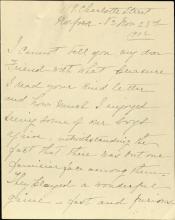 Charlotte Street
Nov 23rd
I cannot tell you my dear
Friend with what pleasure
I read your kind letter
and how much I enjoyed
seeing some of our boys
again notwithstanding the
fact that there was but one
familiar face among them
They played a wonderful
game - fast and furious